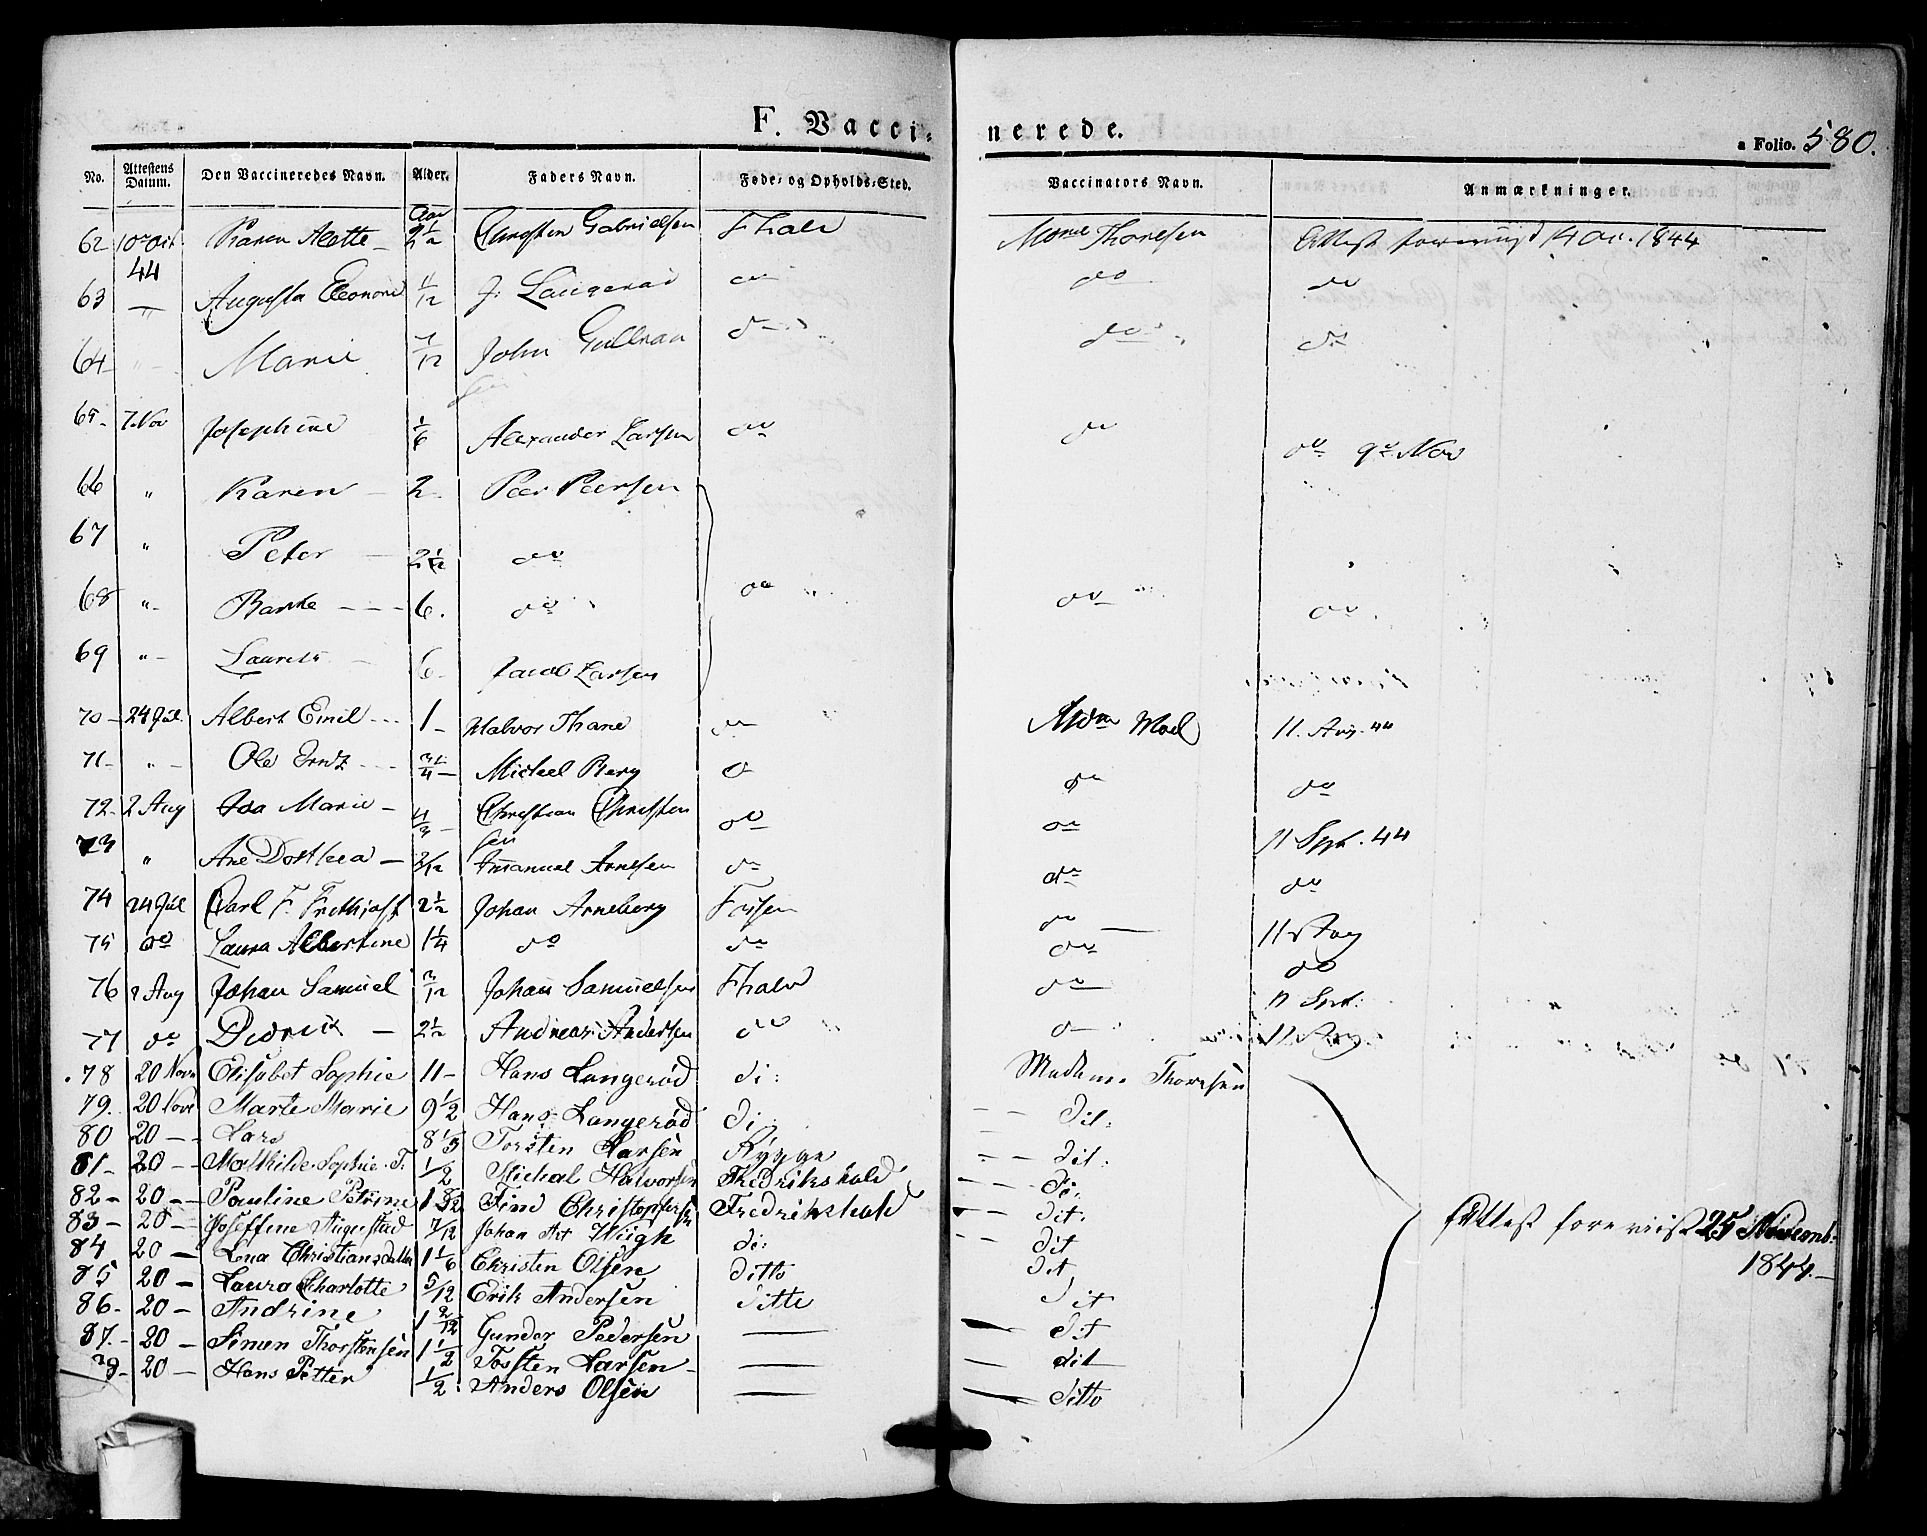 F. Vacci- nerede.
a Folio. 580.
No. Attestens Datum. Den Vaccineredes Navn. Alder. Faders Navn. Føde- og Opholds-Sted. Vaccinators Navn. Anmærkninger.
Aar
62 10de Oct 44 Karen Alette - 2½ Christen Gabrielsen Fhald Mome Thoresen Attest 1844
63 — " Augusta Eleonore 1/12 J. Langerød do do do
64 " Marie 7/12 John Gullran sen do do do
65- 7 Nov Josephine 1/6 Alexander Larsen do do do 9de Nov
66 " Karen - 2 Peer Peersen
67 " Peter 2½ do
68 " - - - 6. do do do do
69 " - 6 Jacob Larsen
70 - 24 Jul. Albert Emil - - 1 - Halvor Thane do Mdm Moel 11. Aug. 44
71 - " - Ole - - 3/4 - Michael Berg do do do
72 - 2 Aug Ida Marie - Christian Christensen do do 11 Sept. 44
73 " Ane Dorthea - Emanuel Arnesen do do do
74 24 Jul Carl F. Frethjoff 2½ Johan Arneberg Fossen do 11 Aug
75 do Laura Albertine 1¼ do do do do
76 2 Aug Johan Samuel 3/12 Johan Samuelsen Fhald do 11 Sept.
77 do Didrik - 2½ Andreas Andersen do do 11 Aug
78 20 Nov Elisabet Sophie 11 - Hans Langerød di: Madame Thoresen
79. 20 Nov Marte Marie 9½ Hans Langerød di: - - dit:
80 20 - - Lars 8 1/3 Torsten Larsen Rygge - - dit:
81 - 20 - - Mathilde Sophie F. ½ Michal Halvorsen Fredrikshald - - - di:
82 - 20 - - Pauline Petrine 1 Christophersen Fredrikshald - dit:
83 - 20 - - Joseffine Augustad 7/12 Johan Wiigh di: - - dit
84 20 - Lena Christians 1 1/6 Christen Olsen ditto dit
85 20 - Laura Charlotte 5/12 Erik Andersen ditto dit
86. - 20 - Andrine 1 2/12 Gunder Pedersen — — dit
87. - 20 - Simen Thorstensen 1½ Torsten Larsen - — — dit
20 - Hans Petter ½ Anders Olsen — — ditto
Attest foreviist 25 Novemb: 1844. -